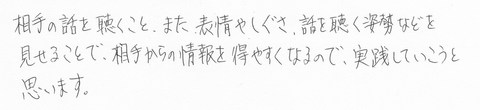 相手の話を聴くこと、また表情やしぐさ、話を聴く姿勢などを
見せることで、相手からの情報を得やすくなるので、実践していこうと
思います。